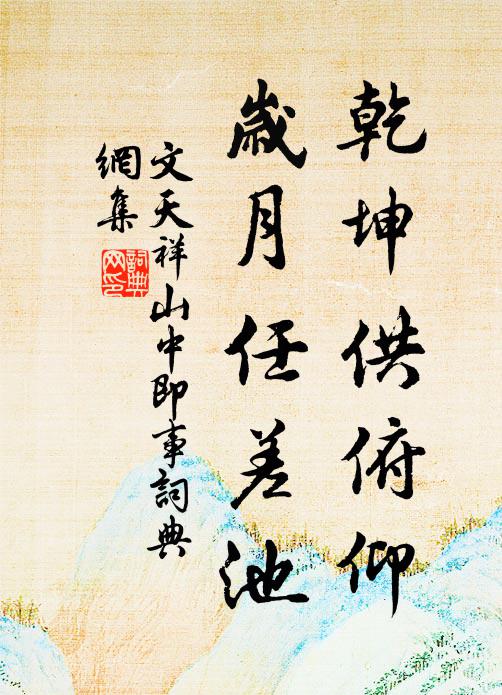 乾坤供俯仰
歲月任差池
文天祥山中即事詞典
網集
詞典網印